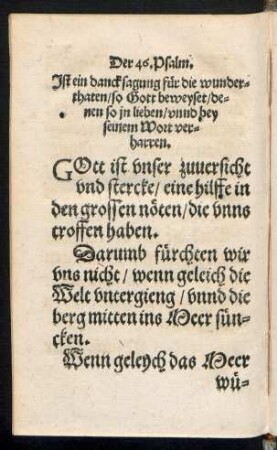 Der 46. Psalm.
Ist ein dancksagung für die wunder-
thaten/so Gott beweyset/de-
nen so jn lieben/vnnd bey
seinem Wort ver-
harren.
GOtt ist vnser zuuersicht
vnd stercke/eine hilffe in
den grossen nöten/die vnns
troffen haben.
Darumb fürchten wir
vns nicht/wenn geleich die
Welt vntergieng/vnnd die
berg mitten ins Meer sün-
cken.
Wenn geleych das Meer
wü-